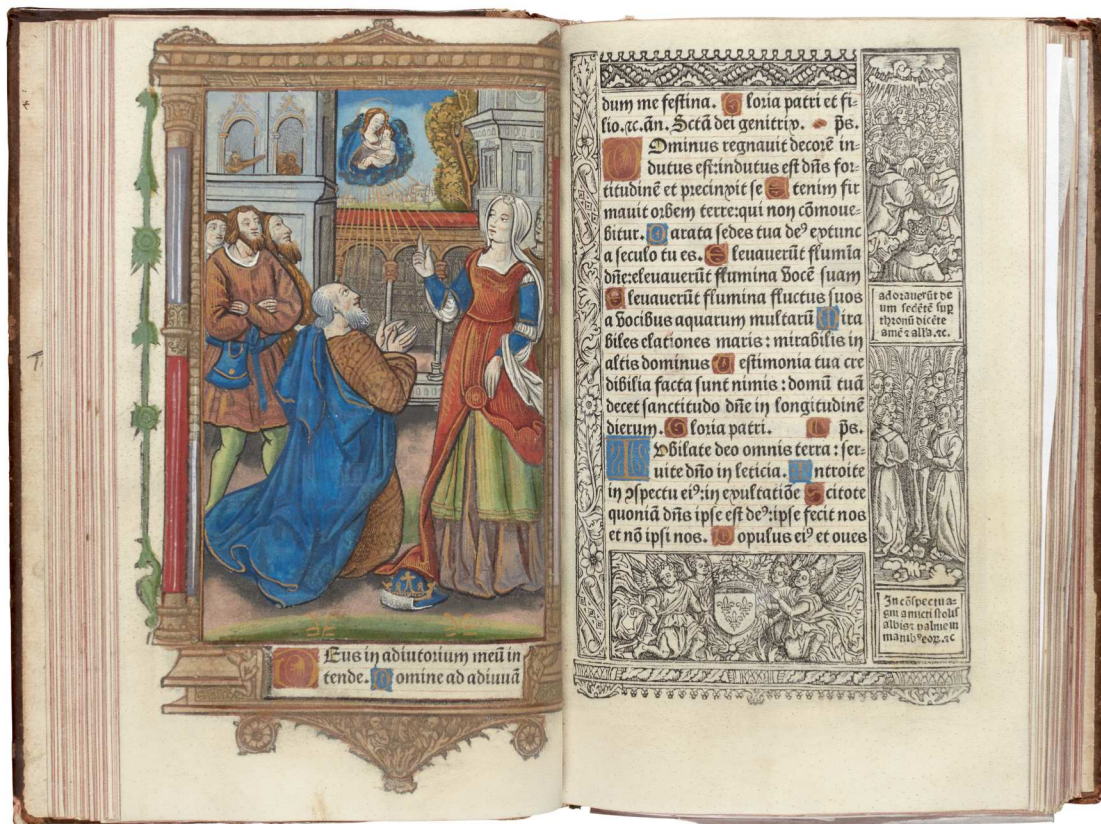 Eus in adiutorium meū in
tende. Domine ad adiuuā
dum me festina. Gloria patri et fi-
lio.⁊c.ān. Sctā dei genitrix. p̄s.
Dominus regnauit decorē in-
dutus est:indutus est dn̄s for-
titudinē et precinxit se Etenim fir
mauit orbem terre:qui non cōmoue-
bitur. Parata sedes tua deꝰ extunc
a seculo tu es. Eleuauerūt flumīa
dn̄e:eleuauerūt flumina vocē suam
Eleuauerūt flumina fluctus suos
a vocibus aquarum multarū Mira
biles elationes maris : mirabilis in
altis dominus Testimonia tua cre
dibilia facta sunt nimis : domū tuā
decet sanctitudo dn̄e in longitudinē
dierum. Gloria patri. p̄s.
Iubilate deo omnis terra : ser-
uite dn̄o in leticia. Introite
in ↄspectu eiꝰ:in exultatiōe Scitote
quoniā dn̄s ipse est deꝰ:ipse fecit nos
et nō ipsi nos. Populus eiꝰ et oues
adorauerūt de
um sedētē sup
thronū dicēte
amē ⁊ alla.⁊c.
In cōspectu a-
gni amicti stolis
albis⁊ palme in
manibꝰ eoꝝ.⁊c